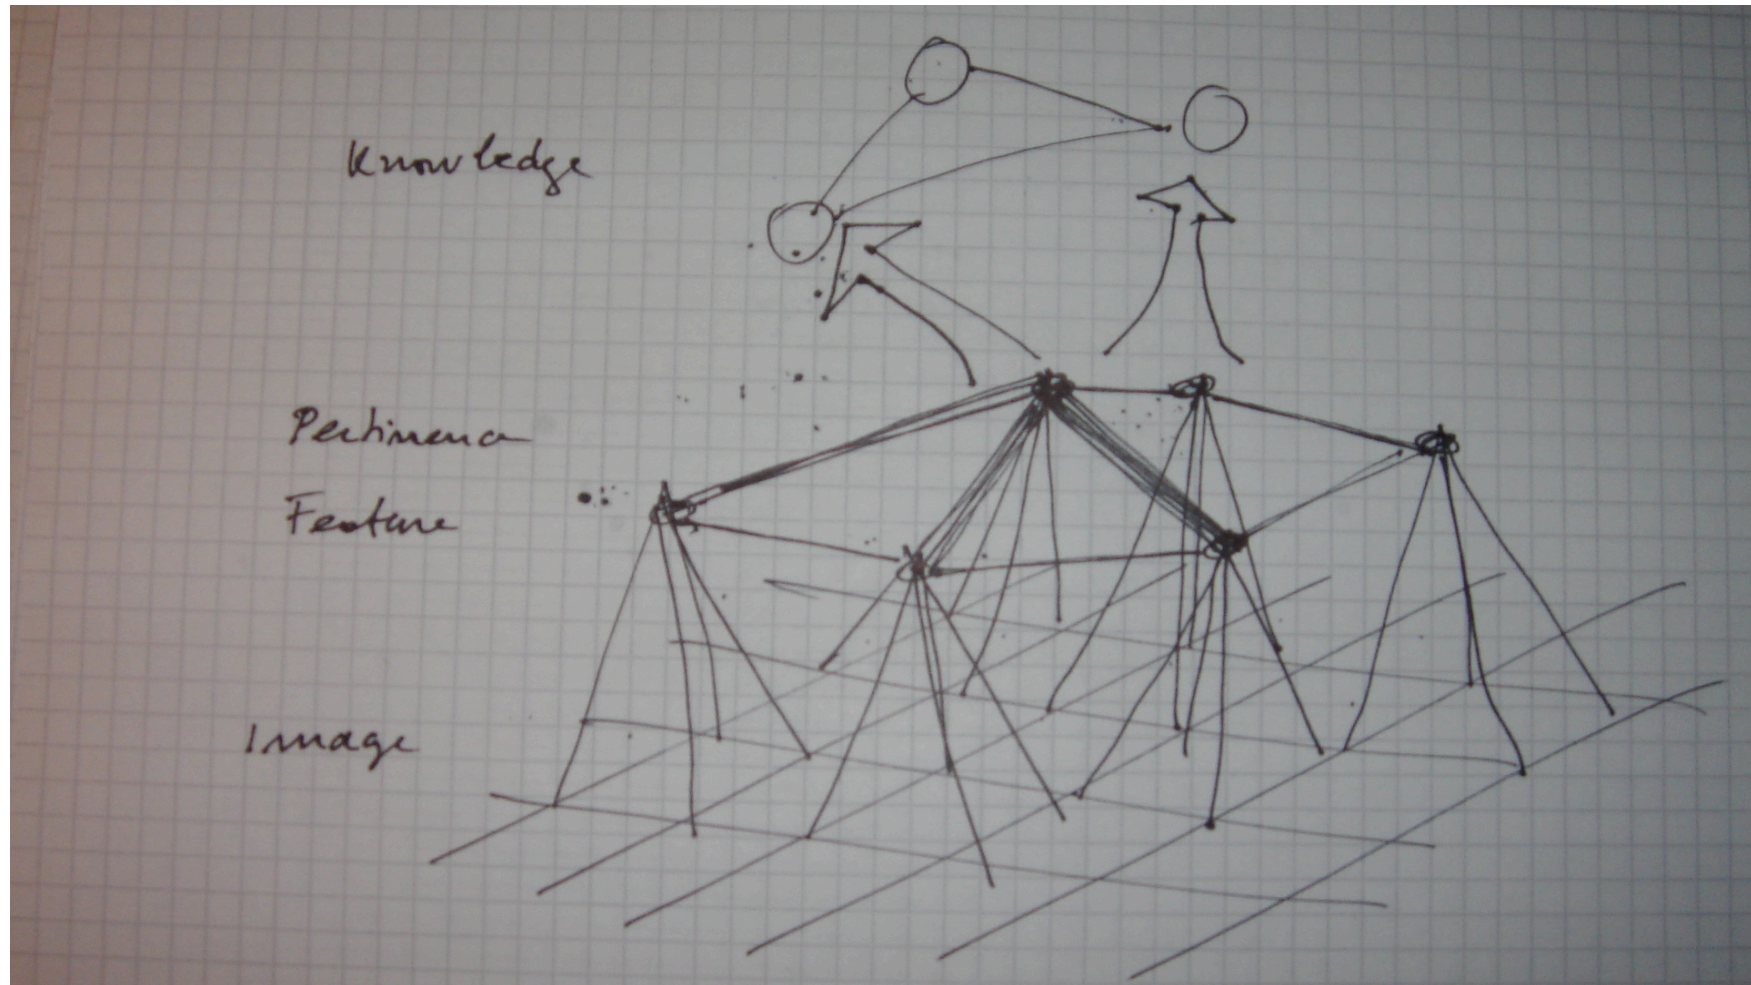 Knowledge
Pertinence
Feature
Image